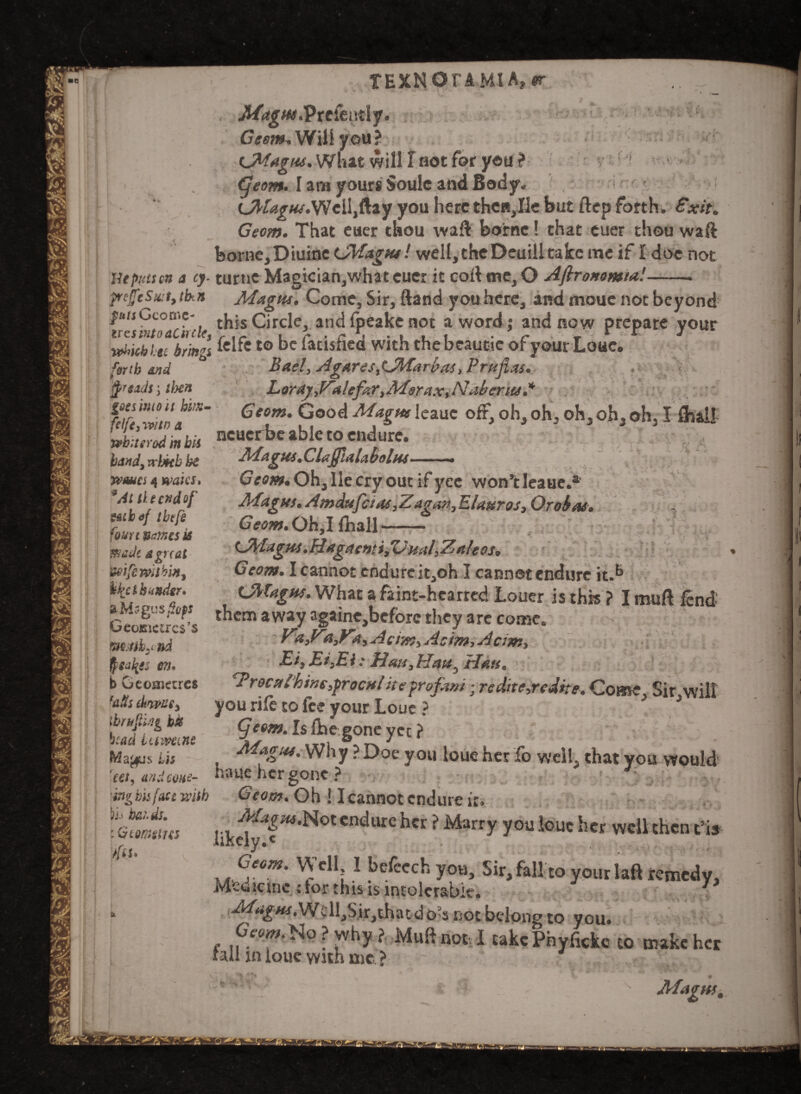 ΤΕΧΝΟΓΑΜΙΑ, or
Magus. Preſently.
Geom. Will you?
Magus. What will I not for you?
Geom. I am yours Soule and Body.
Magus. Well, ſtay you here then, Ile but ſtep forth. Exit.
Geom. That euer thou waſt borne! that euer thou waſt
borne, Diuine Magus! well, the Deuill take me if I doe not
turne Magician, what euer it coſt me, O Aſtronomia!
Magus. Come, Sir, ſtand you here, and moue not beyond
this Circle, and ſpeake not a word; and now prepare your
ſelfe to be ſatisfied with the beautie of your Loue.
Bael, Agares, Marbas, Pruſlas.
Loray, Valefar, Morax, Naberius.*
Geom. Good Magus leaue off, oh, oh, oh, oh, oh, I ſhall
neuer be able to endure.
Magus. Claſſialabolus
Geom. Oh, Ile cry out if yee won't leaue.a
Magus. Amduſcias, Zagan, Elauros, Orobas.
Geom. Oh, I ſhall
Magus. Hagaenti, Vual, Zaleos.
Geom. I cannot endure it, oh I cannot endure it.b
Magus. What a faint-hearted Louer is this? I muſt ſend
them away againe, before they are come.
Va, Va, Va, Acim, Acim, Acim,
Ei, Ei, Ei: Hau, Hau, Hau.
Procul hinc, procul ite profani; redite, redite. Come, Sir, will
you riſe to ſee your Loue?
Geom. Is ſhe gone yet?
Magus. Why? Doe you loue her ſo well, that you would
haue her gone?
Geom. Oh! I cannot endure it.
Magus. Not endure her? Marry you loue her well then t'is
likely.c
Geom. Well, I beſeech you, Sir, fall to your laſt remedy,
Medicine: for this is intolerable.
Magus. Well, Sir, that do's not belong to you.
Geom. No? why? Muſt not I take Phyſicke to make her
fall in loue with me?
Magus.
He puts on a cy-
preſſe Sute, then
puts Geome-
tres into a Circle,
which hee brings
forth and
ſpreads; then
goes into it him-
ſelfe, with a
white rod in his
hand, which he
waues 4 waies.
*At the end of
each of theſe
foure names is
made a great
noiſe within,
like thunder.
a Magus ſtops
Geometres's
mouth, and
ſpeakes on.
b Geometres
fals downe,
thruſting his
head betweene
Magus his
feet, and coue-
ring his face with
his hands.
c Geometres